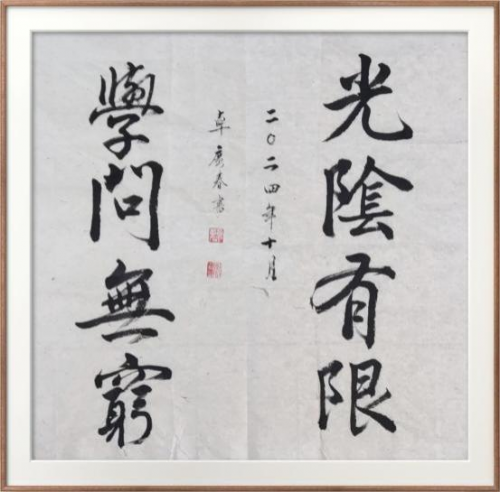 光陰有限
二〇二四年十月
卓广春書
學問無窮